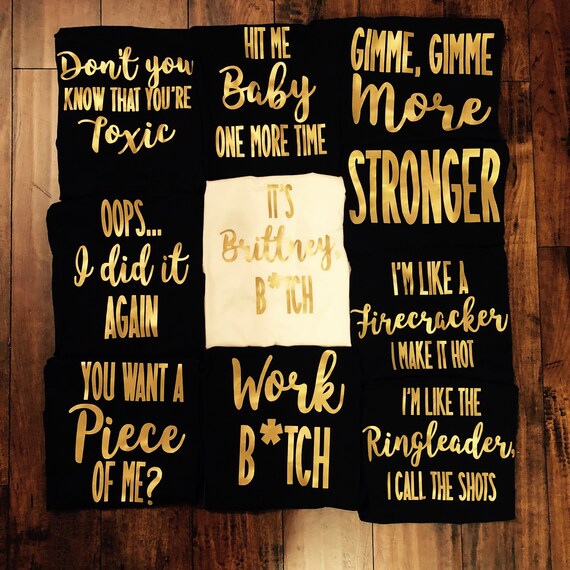 Don't you
KNOW THAT YOU'RE
Toxic
HIT ME
Baby
ONE MORE TIME
GIMME, GIMME
More
STRONGER
OOPS...
I did it
AGAIN
IT'S
Brittney,
B*TCH
I'M LIKE A
Firecracker
I MAKE IT HOT
YOU WANT A
Piece
OF ME?
Work
B*TCH
I'M LIKE THE
Ringleader,
I CALL THE SHOTS